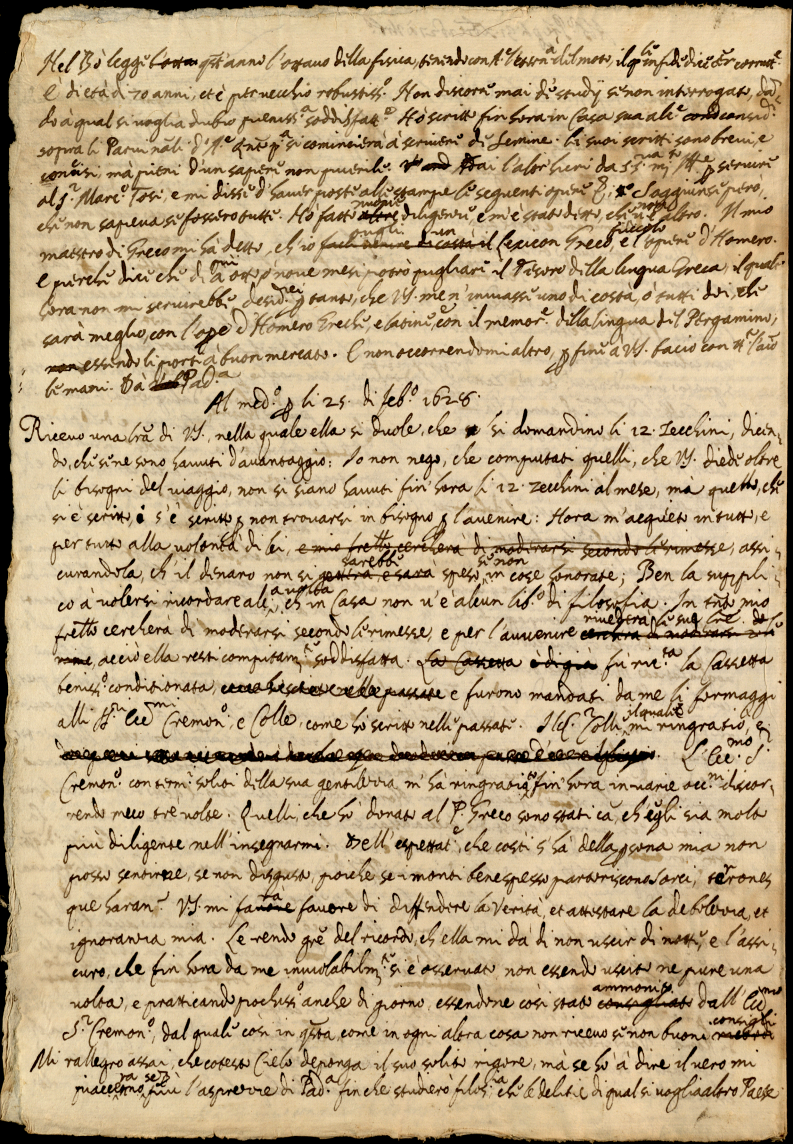 Nel Bò leggerà quest'anno l'ottavo della fisica, tenendo con Ar.le l'eternità del moto, il
È di età di 70 anni, et è per vecchio robustiss.o Non discorre mai de studij se non interrogato, dan
do a qual si voglia dubio pieniss.a soddisfatt.e Hò scritto fin hora in Casa sua
sopra li Parvi nali d'Ar.e si comincierà à scrivere de Semine. Li suoi scritti sono brevi, e
concisi, mà pieni d'un sapere non puerile.
al S.r Marc.o Tosi, e mi disse d'haver posto alle stampe le seguenti opere soggiunse però,
che non sapeva se fossero tutte. Hò fatto nuove diligenze, e m'è stato detto, che non v'è altro. Il mio
maestro di Greco mi hà detto, ch'io il Lexicon Greco, e l'opere d'Homero.
e perche dice che di quà à otto, ò nove mesi potrò pigliare il Tesoro della lingua Greca, il quale
hora non mi servirebbe, desid.rei p tanto, che VS. me n'inviasse uno di costà, ò tutti doi, che
sarà meglio, con l'ope d'Homero Greche, e latine, con il memor.e della lingua del Pergamino,
essendo li porti à buon mercato. E non occorrendomi altro, p fine à VS. bacio con
le mani. Da Pad.a
Al med.o p li 25. di feb.o 1628.
Ricevo una lrã di VS., nella quale ella si duole, che si domandino li 12. zecchini, dicen,
do, che se ne sono havuti d'avantaggio: Io non nego, che computati quelli, che VS. diede oltre
li bisogni del viaggio, non si siano havuti fin hora li 12. zecchini al mese, mà quello, che
si è scritto, s'è scritto p non trovarsi in bisogno p l'avenire: Hora m'acqueto in tutto, e
per tutto alla volontà di lei, e mio frello cercherà di moderarsi secondo le rimesse, assi,
curandola, ch'il denaro non si sarebbe speso, se non in cose honorate; Ben la suppli,
co à volersi ricordare alle volte, ch'in Casa non v'è alcun lib.o di filosofia. In tanto mio
frello cercherà di moderarsi secondo le rimesse, e per l'avvenire
acciò ella resti compitam.te soddisfatta. La Cassetta fù ric.ta la Cassetta
beniss.o conditionata, e furono mandati da me li formaggi
alli SS.ri Ecc.mi Cremon.o e Colle, come hò scritto nelle passate. Il S.r Colle, il quale mi ringratiò, e
L'Ecc.mo S.r
Cremon.o con term.i soliti della sua gentilezza m'hà ringratiato, e fin hora in varie occ.ni discor,
rendo meco tre volte. Quelli, che hò donato al P. Greco sono stati cã, ch'egli sia molto
più diligente nell'insegnarmi. Dell'espettat.e, che costì s'hà della psona mia non
posso sentirne, se non disgusto, poiche se i monti benespesso partoriscono sorci,
que haran.o VS. mi farà favore di diffendere la Verità, et attestare la debolezza, et
ignoranza mia. Le rendo grẽ del ricordo, ch'ella mi dà di non uscir di notte, e l'assi,
curo, che fin hora da me inviolabilm.te si è osservato non essendo uscito ne pure una
volta, e pratticando pochiss.o anche di giorno, essendone così stato ammonito consigliato dall'Ecc.mo
S.r Cremon.o, dal quale così in qsta, come in ogni altra cosa non ricevo se non buoni consigli
Mi rallegro assai, che cotesto Cielo deponga il suo solito rigore, mà se hò à dire il vero mi
più l'asprezze di Pad.a fin che studierò filos.a che le delitie di qual si voglia altro Paese